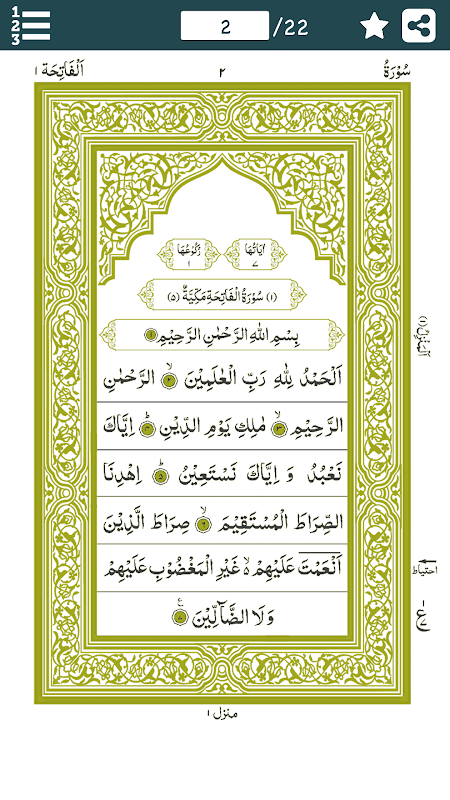 1
2
3
2 /22
سُوْرَةُ ٢ اَلْفَاتِحَة ١
اٰيَاتُهَا ٧ رُكُوْعُهَا ١
(١) سُوْرَةُ الْفَاتِحَةِ مَكِّيَّةٌ (٥)
بِسْمِ اللّٰهِ الرَّحْمٰنِ الرَّحِيْمِ ١
اَلْحَمْدُ لِلّٰهِ رَبِّ الْعٰلَمِيْنَ ۙ ٢ الرَّحْمٰنِ
الرَّحِيْمِ ۙ ٣ مٰلِكِ يَوْمِ الدِّيْنِ ؕ ٤ اِيَّاكَ
نَعْبُدُ وَ اِيَّاكَ نَسْتَعِيْنُ ؕ ٥ اِهْدِنَا
الصِّرَاطَ الْمُسْتَقِيْمَ ۙ ٦ صِرَاطَ الَّذِيْنَ
اَنْعَمْتَ عَلَيْهِمْ ۙ۬ غَيْرِ الْمَغْضُوْبِ عَلَيْهِمْ
وَلَا الضَّآلِّيْنَ ٧
اَلْمَنْزِلُ (١)
احتياط
ع
منزل ١